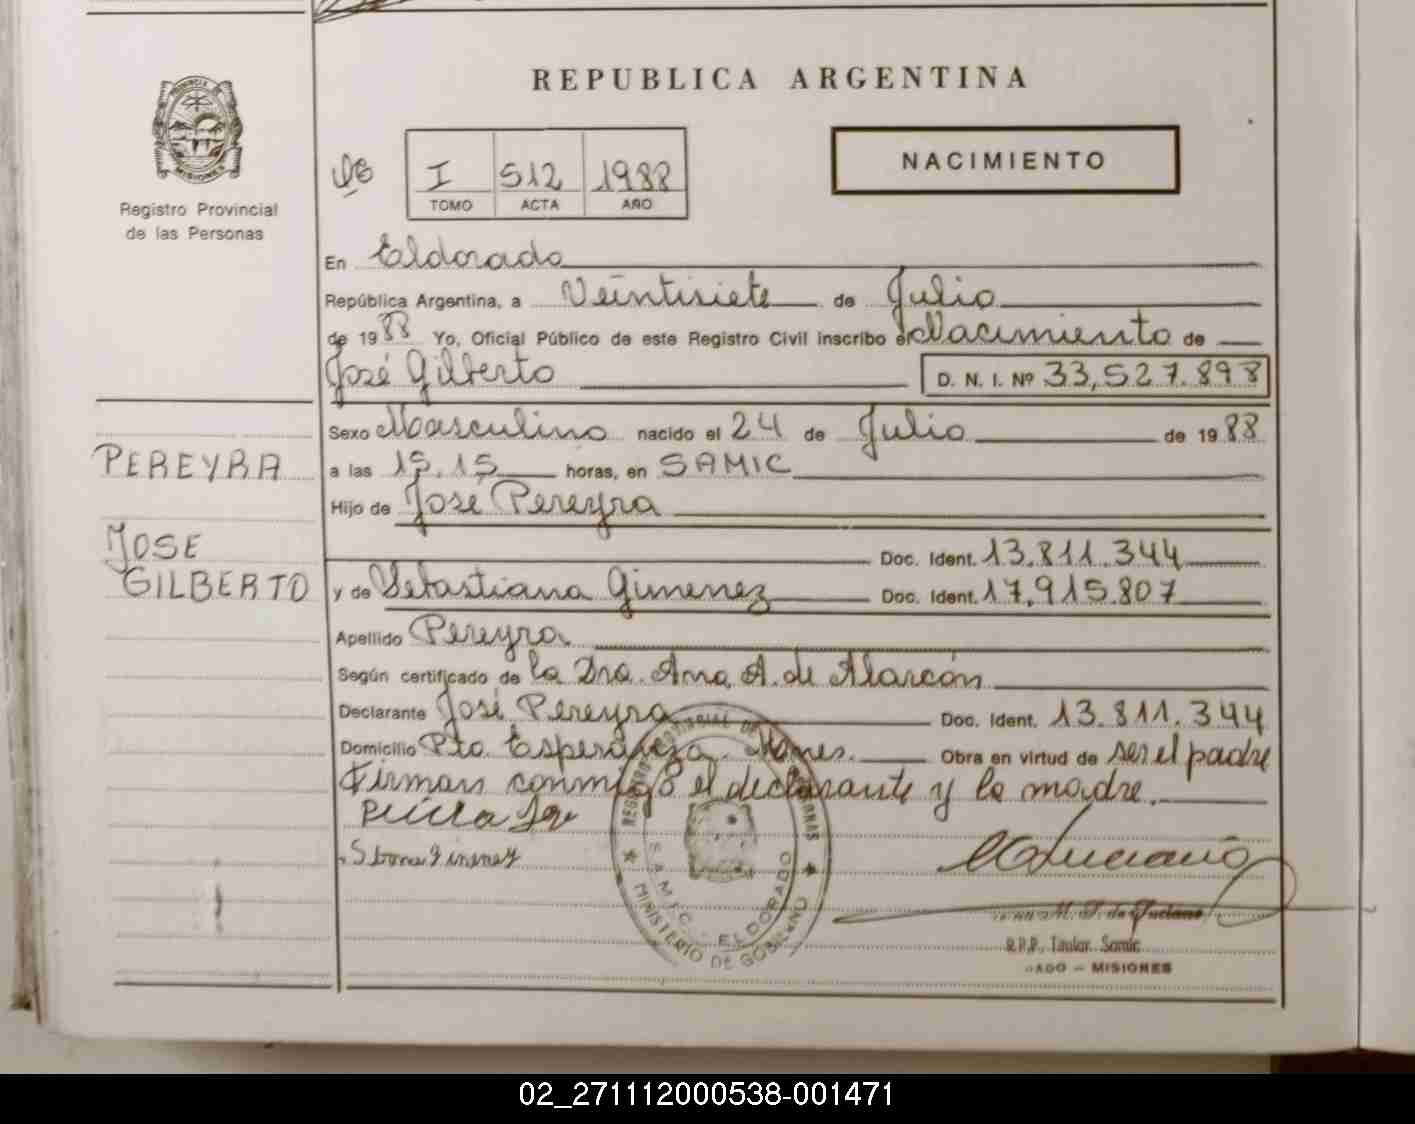 REPUBLICA ARGENTINA
I 512 1988
TOMO ACTA AÑO
NACIMIENTO
MISIONES
Registro Provincial
de las Personas
En Eldorado
República Argentina, a Veintisiete de Julio
de 1988 Yo, Oficial Público de este Registro Civil inscribo el Nacimiento de
José Gilberto D. N. I. Nº 33,527.898
Sexo Masculino nacido el 24 de Julio de 1988
PEREYRA
a las 15.15 horas, en SAMIC
Hijo de José Pereyra
JOSE
GILBERTO
Doc. Ident. 13.811.344
y de Sebastiana Gimenez Doc. Ident. 17.915.807
Apellido Pereyra
Según certificado de la Dra. Ana A. de Alarcón
Declarante José Pereyra Doc. Ident. 13.811.344
Domicilio Pto Esperanza. Mnes. Obra en virtud de ser el padre
Firman conmigo el declarante y la madre.
REGISTRO PROVINCIAL DE LAS PERSONAS
SAMIC - ELDORADO
MINISTERIO DE GOBIERNO
M. F. de Luciano
R.P.P. Titular Samic
ADO - MISIONES
02_271112000538-001471